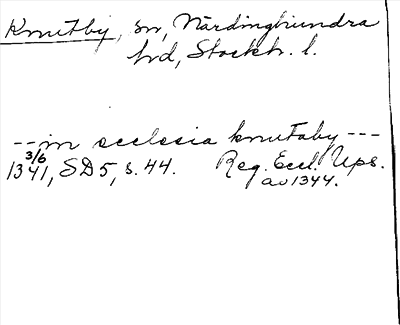 Knutby, sn, Närdinghundra
hd, Stockh. l.
--in ecclesia knutaby---
3/6
1341, SD5, s. 44. Reg. Eccl. Ups.
av 1344.